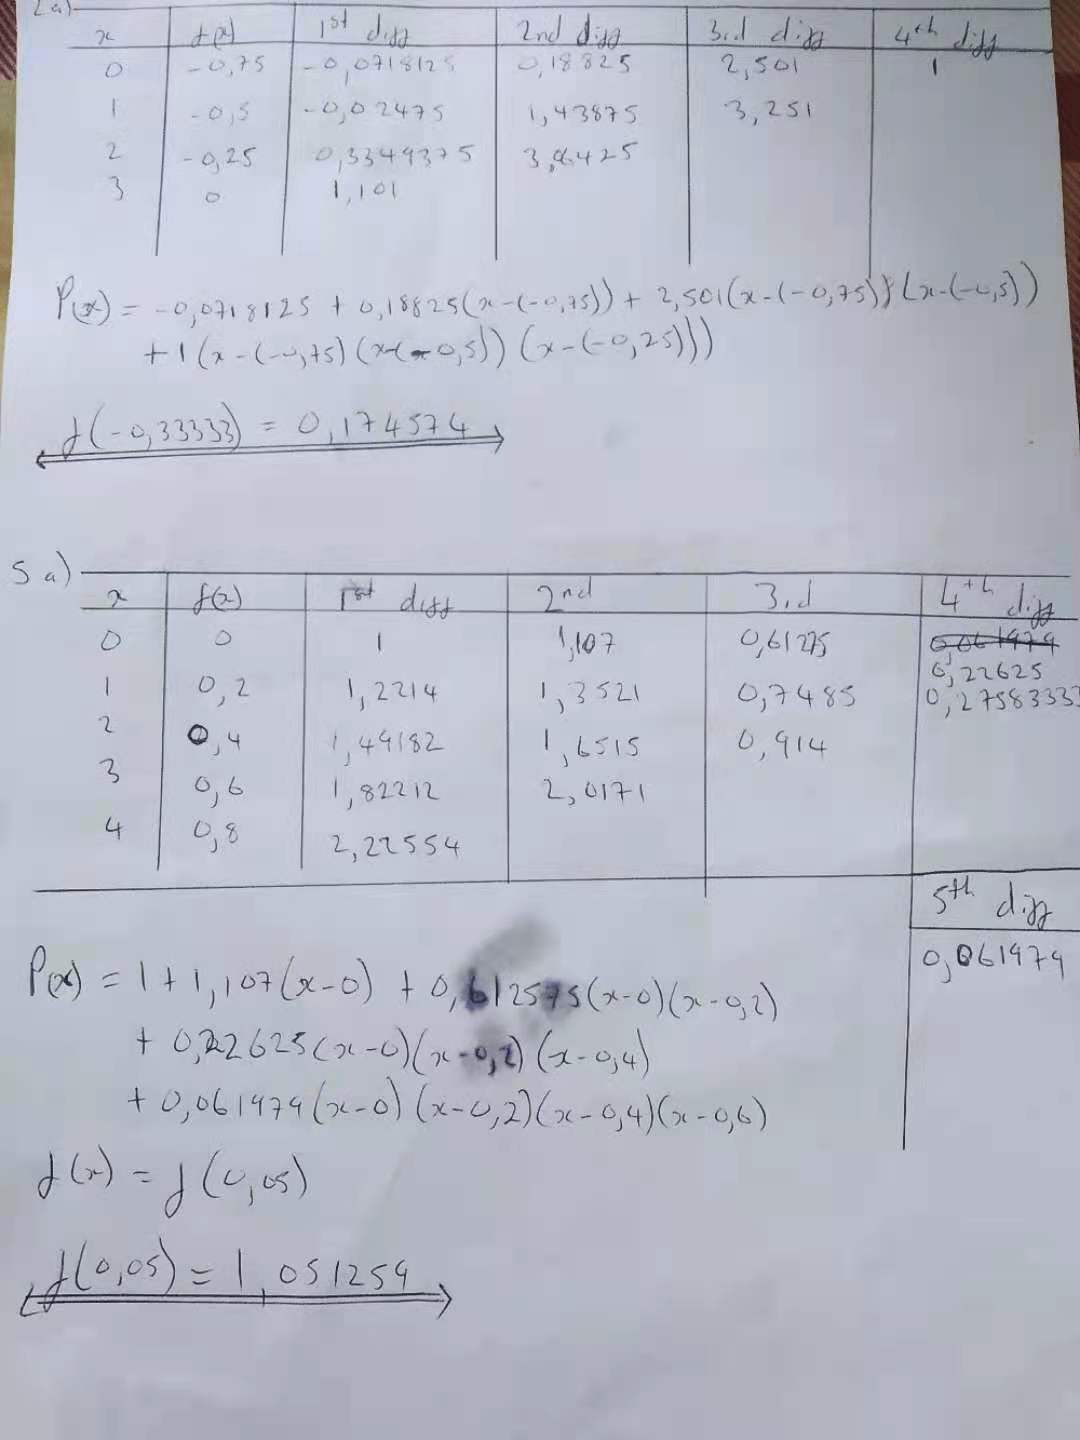 2a)
x f(x) 1st diff 2nd diff 3rd diff 4th diff
0 -0,75 -0,0718125 0,18825 2,501 1
1 -0,5 -0,02475 1,43875 3,251
2 -0,25 0,3349375 3,86425
3 0 1,101
P(x) = -0,0718125 + 0,18825(x-(-0,75)) + 2,501(x-(-0,75))(x-(-0,5))
+ 1(x-(-0,75)(x-(-0,5))(x-(-0,25)))
f(-0,33333) = 0,174574
5a)
x f(x) 1st diff 2nd 3rd 4th diff
0 0 1 1,107 0,61275 0,061979
0,22625
1 0,2 1,2214 1,3521 0,7485 0,27583333
2 0,4 1,49182 1,6515 0,914
3 0,6 1,82212 2,0171
4 0,8 2,22554
5th diff
0,061979
P(x) = 1+1,107(x-0) + 0,612575(x-0)(x-0,2)
+ 0,22625(x-0)(x-0,2)(x-0,4)
+ 0,061979(x-0)(x-0,2)(x-0,4)(x-0,6)
f(x) = f(0,05)
f(0,05) = 1,051259